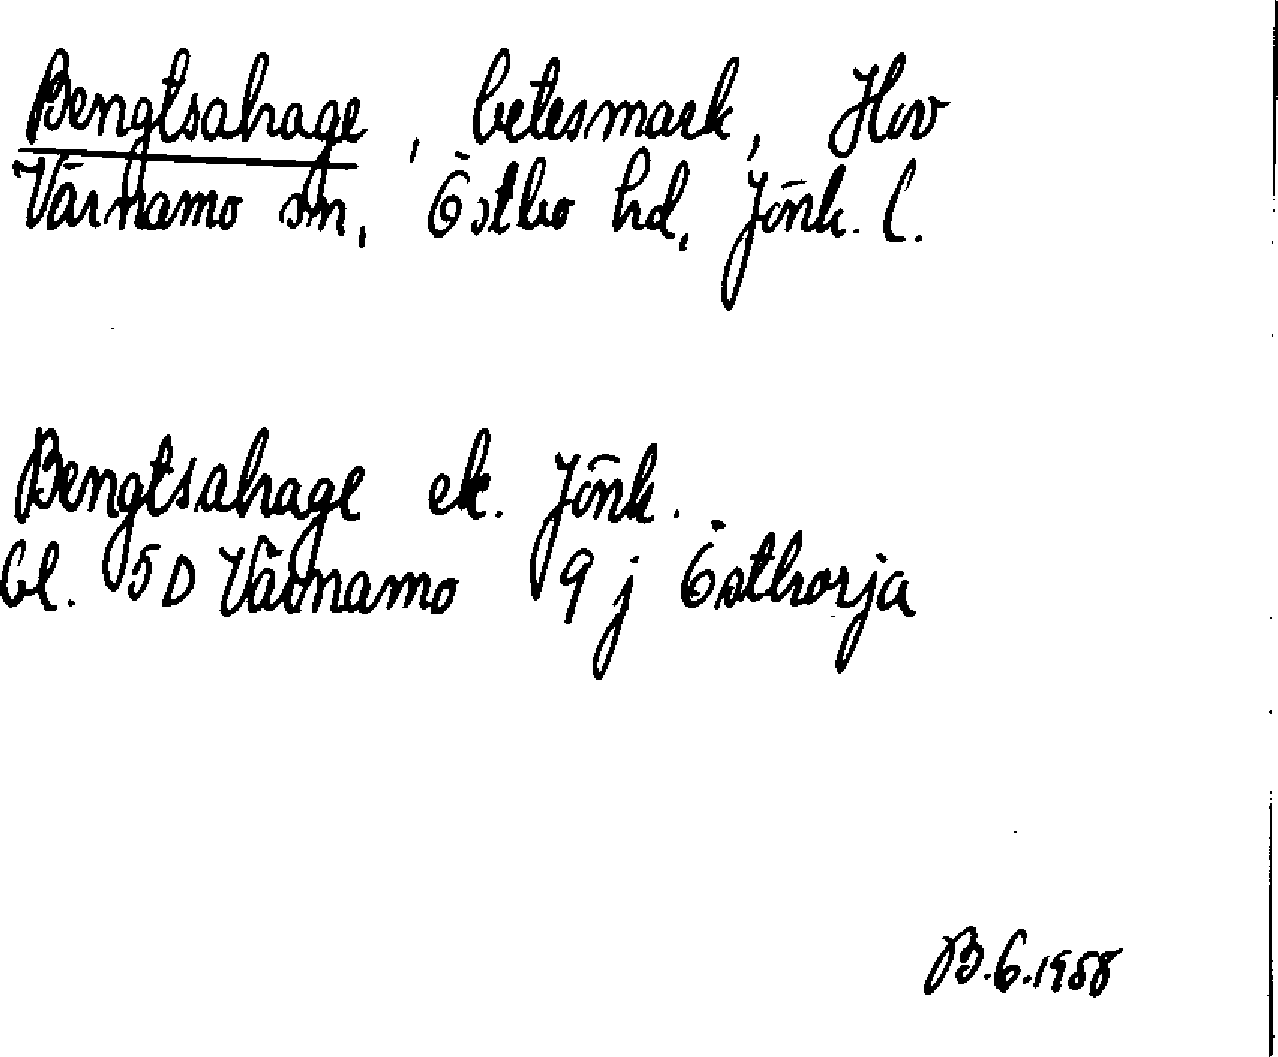 Bengtsahage, betesmark, Hov
Värnamo sn, Östbo hd, Jönk. l.
Bengtsahage ek. Jönk.
bl. 5D Värnamo 9 j Östhorja
B.G.1958